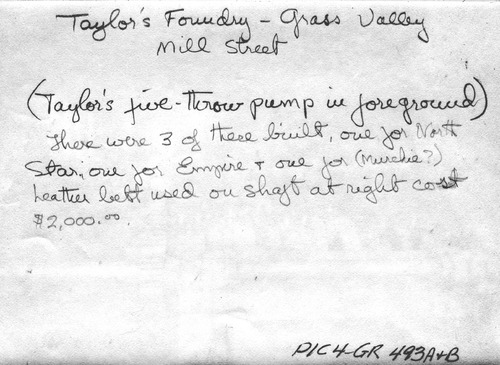 Taylor's Foundry - Grass Valley
Mill Street
(Taylor's five-throw pump in foreground)
There were 3 of these built, one for North
Star, one for Empire + one for (Murchie?)
Leather belt used on shaft at right cost
$2,000.00.
PIC 4-GR 493A+B